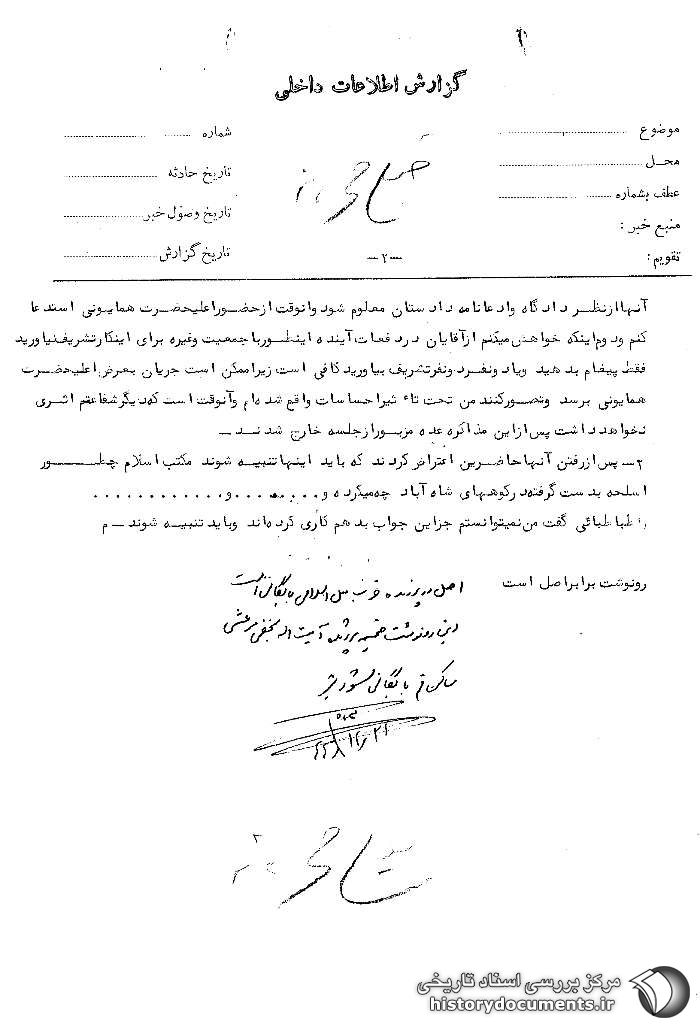 گزارش اطلاعات داخلی
موضوع
محل
عطف بشماره
منبع خبر :
تقویم :
شماره
تاریخ حادثه
تاریخ وصول خبر
تاریخ گزارش
-۲-
آنها از نظر دادگاه وادعانامه دادستان معلوم شود وآنوقت از حضور اعلیحضرت همایونی استدعا
کنم ودوم اینکه خواهش میکنم از آقایان در دفعات آینده اینطور با جمعیت وغیره برای اینکار تشریف نیاورید
فقط پیغام بدهید ویا دونفر تشریف بیاورید کافی است زیرا ممکن است جریان بعرض اعلیحضرت
همایونی برسد وتصور کنند من تحت تاثیر احساسات واقع شده ام وآنوقت است که دیگر شفاعتم اثری
نخواهد داشت پس از این مذاکره عده مزبور از جلسه خارج شدند ــ
۲ــ پس از رفتن آنها حاضرین اعتراض کردند که باید اینها تنبیه شوند مکتب اسلام چطور
اسلحه بدست گرفته در کوههای شاه آباد چه میکرده و........و............
طباطبائی گفت من نمیتوانستم جز این جواب بدهم کاری کرده اند وباید تنبیه شوند ــ م
رونوشت برابر اصل است
اصل در پرونده حزب ملل اسلامی بایگانی است
این رونوشت ضمیمه پرونده آیت اله نجفی مرعشی
ساکن قم بایگانی شود
مرکز بررسی اسناد تاریخی
historydocuments.ir